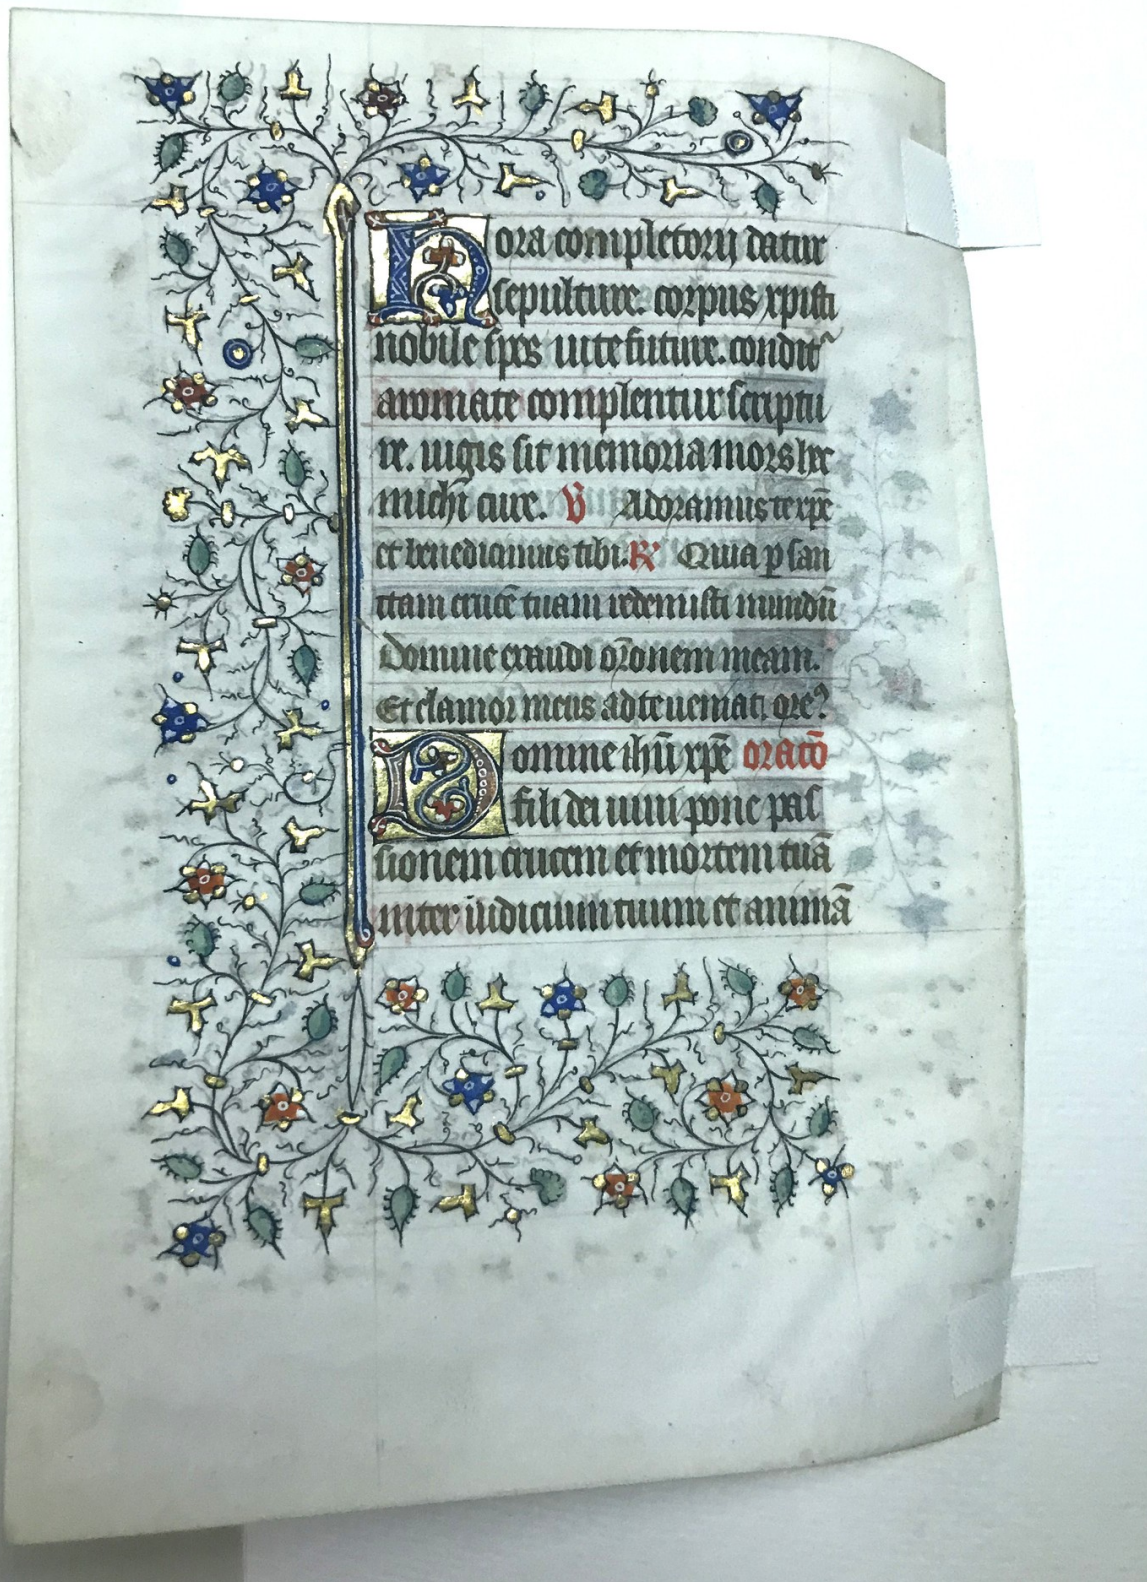 Hora completorij datur
sepulture. corpus xpisti
nobile spes uite future. condit᷑
aromate complentur scriptu
re. iugis sit memoria mors hec
michi cure. V̄ Adoramus te xp̄e
et benedicimus tibi. ℟ Quia p san
ctam crucē tuam redemisti mundū
Domine exaudi or̄onem meam.
Et clamor meus ad te ueniat. ore?
Domine ihū xp̄e oratō
fili dei uiui pone pas
sionem crucem et mortem tuā
inter iudicium tuum et animā